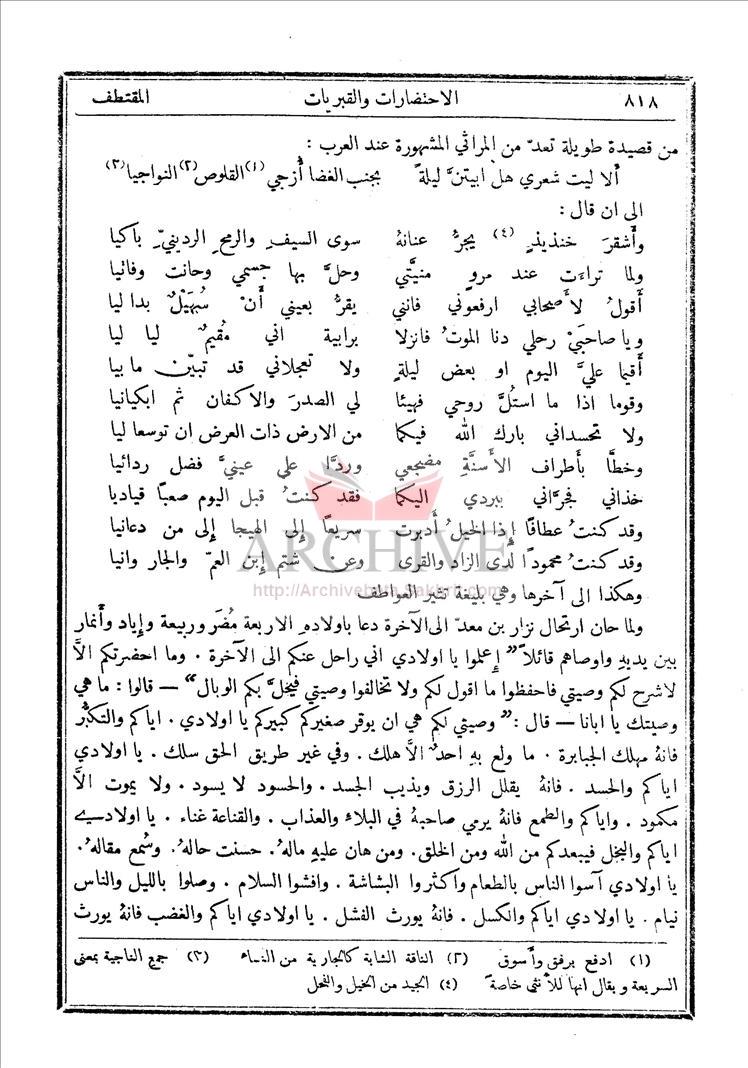 ٨١٨ الاحتضارات والقبريات المقتطف
من قصيدة طويلة تعدّ من المراثي المشهورة عند العرب :
ألا ليت شعري هل ابيتنَّ ليلةً بجنب الغضا أُزجي (١) القلوص (٢) النواجيا (٣)
الى ان قال :
وأشقرَ خنذيذٍ (٤) يجرُّ عنانهُ سوى السيفِ والرمحِ الردينيِّ باكيا
ولما تراءَت عند مروٍ منيَّتي وحلَّ بها جسمي وحانت وفاتيا
أقولُ لأصحابي ارفعوني فانني يقرُّ بعيني أَنْ سُهَيْلٌ بدا ليا
ويا صاحبَيْ رحلي دنا الموتُ فانزلا برابية اني مُقيمٌ ليا ليا
أقيما عليَّ اليوم او بعض ليلةٍ ولا تعجلاني قد تبيّن ما بيا
وقوما اذا ما استُلَّ روحي فهيئا لي الصدرَ والاكفان ثم ابكيانيا
ولا تحسداني بارك الله فيكما من الارض ذات العرض ان توسعا ليا
وخطَّا بأطراف الأسنَّةِ مضجعي وردَّا على عينيَّ فضل ردائيا
خذاني فجرَّاني ببردي اليكما فقد كنتُ قبل اليوم صعبًا قياديا
وقد كنتُ عطافًا إِذا الخيلُ أَدبرت سريعًا إِلى الهيجا إِلى من دعانيا
وقد كنتُ محمودًا لدى الزاد والقرى وعن شتم إِبن العمّ والجار وانيا
ARCHIVE
http://Archivebeta.Sakhrit.com
وهكذا الى آخرها وهي بليغة تثير العواطف
ولما حان ارتحال نزار بن معدّ الى الآخرة دعا باولادهِ الاربعة مُضَر وربيعة وإِياد وأنمار
بين يديهِ واوصاهم قائلاً "إعلموا يا اولادي اني راحل عنكم الى الآخرة . وما احضرتكم الاَّ
لاشرح لكم وصيتي فاحفظوا ما اقول لكم ولا تخالفوا وصيتي فيحلَّ بكم الوبال" — قالوا : ما هي
وصيتك يا ابانا — قال : " وصيتي لكم هي ان يوقر صغيركم كبيركم يا اولادي . اياكم والتكبُّر
فانهُ مهلك الجبابرة . ما ولع بهِ احدٌ الاَّ هلك . وفي غير طريق الحق سلك . يا اولادي
اياكم والحسد . فانهُ يقلل الرزق ويذيب الجسد . والحسود لا يسود . ولا يموت الاَّ
مكمود . واياكم والطمع فانهُ يرمي صاحبهُ في البلاءِ والعذاب . والقناعة غناء . يا اولادي
اياكم والبخل فيبعدكم من الله ومن الخلق . ومن هان عليهِ مالهُ . حسنت حالهُ . وسُمع مقالهُ .
يا اولادي آسوا الناس بالطعام واكثروا البشاشة . وافشوا السلام . وصلوا بالليل والناس
نيام . يا اولادي اياكم والكسل . فانهُ يورث الفشل . يا اولادي اياكم والغضب فانهُ يورث
(١) ادفع برفق وأسوق (٢) الناقة الشابة كالجارية من النساء (٣) جمع الناجية بمعنى
السريعة ويقال انها للأنثى خاصةً (٤) الجيد من الخيل والفحل